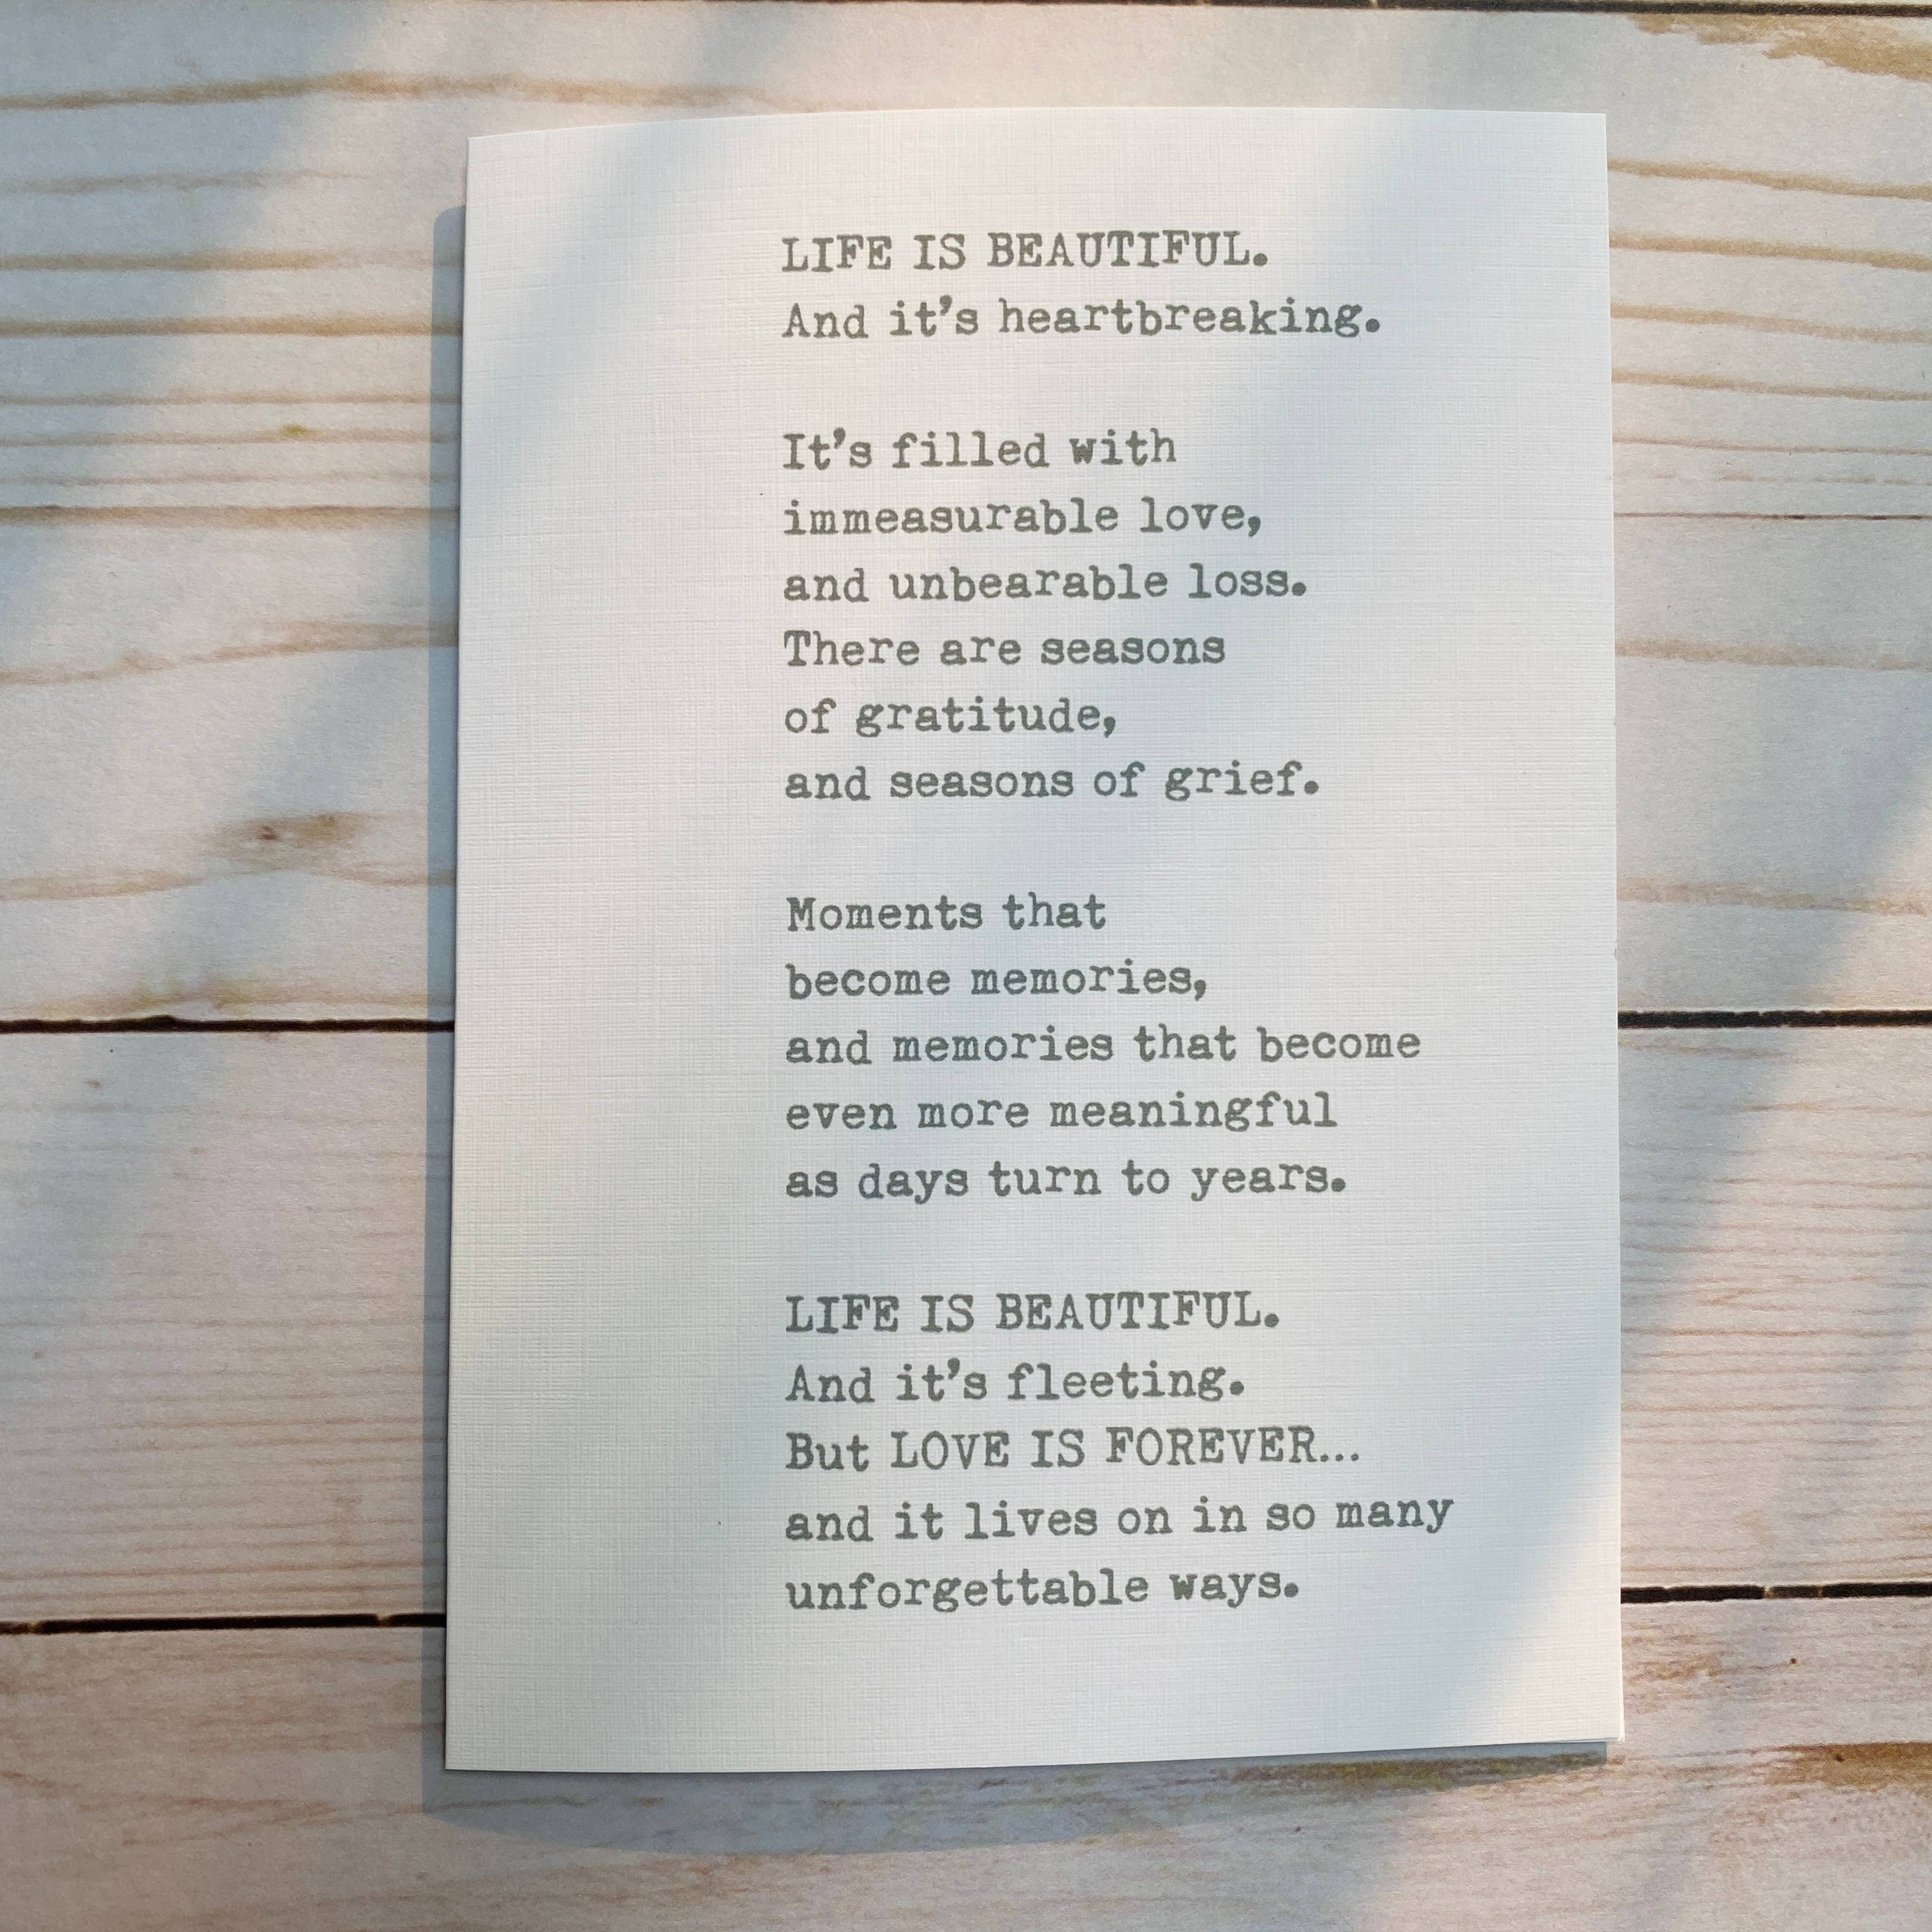 LIFE IS BEAUTIFUL.
And it's heartbreaking.
It's filled with
immeasurable love,
and unbearable loss.
There are seasons
of gratitude,
and seasons of grief.
Moments that
become memories,
and memories that become
even more meaningful
as days turn to years.
LIFE IS BEAUTIFUL.
And it's fleeting.
But LOVE IS FOREVER...
and it lives on in so many
unforgettable ways.